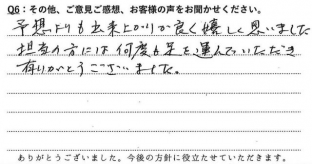 Q6：その他、ご意見ご感想、お客様の声をお聞かせください。
予想よりも出来上がりが良く嬉しく思いました
担当の方には何度も足を運んでいただき
有りがとうございました。
ありがとうございました。今後の方針に役立たせていただきます。